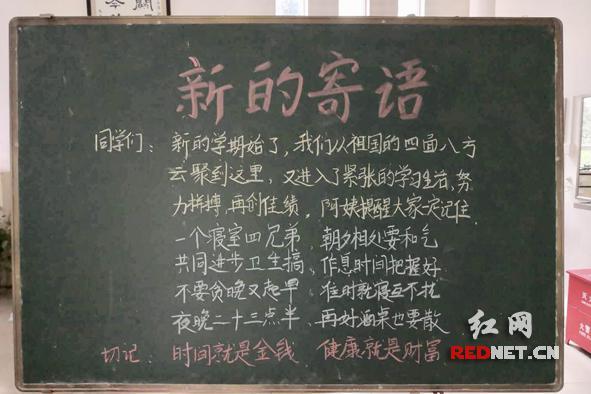 新的寄语
同学们：新的学期始了，我们从祖国的四面八方
云聚到这里，又进入了紧张的学习生活，努
力拼搏，再创佳绩，阿姨提醒大家一定记住，
一个寝室四兄弟、朝夕相处要和气
共同进步卫生搞、作息时间把握好
不要贪晚又起早、准时就寝互不扰
夜晚二十三点半、再好酒桌也要散
切记：时间就是金钱、健康就是财富
红网
REDNET.CN